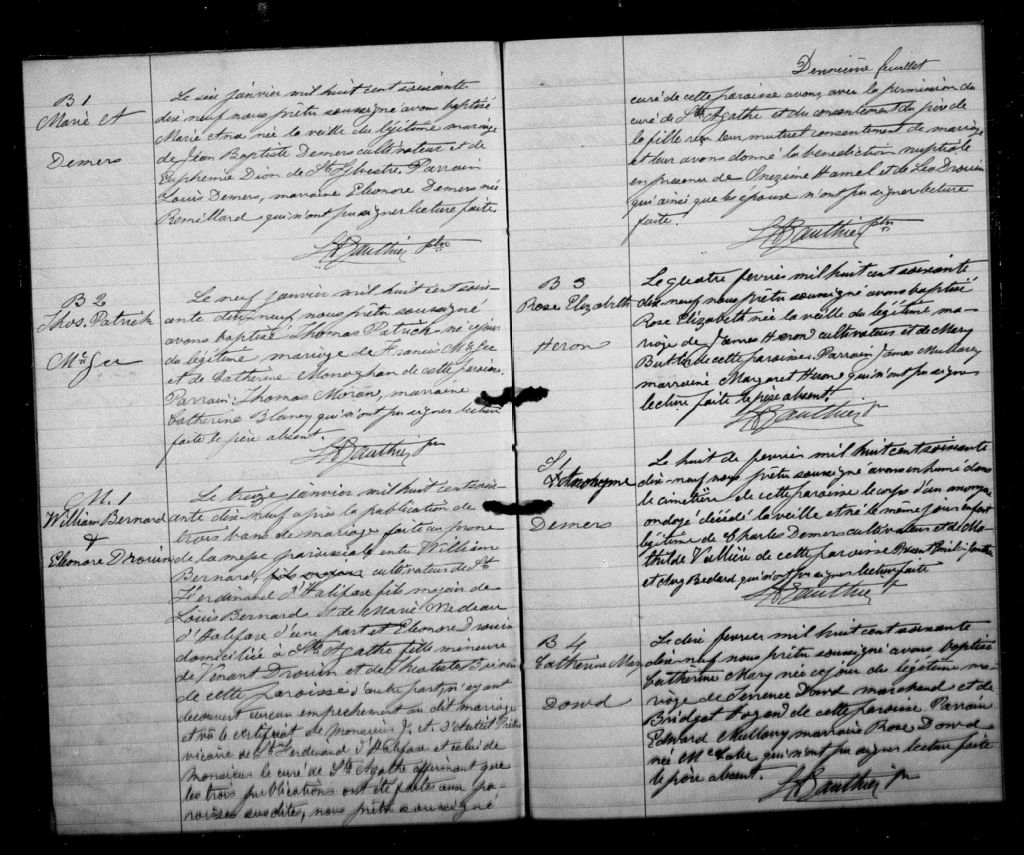 B 1
Marie A
Demers
Le six janvier mil huit cent soixante
dix neuf nous prêtre soussigné avons baptisé
Marie Ana née la veille du légitime mariage
de Jean Baptiste Demers cultivateur et de
Euphemie Dion de St Sylvestre. Parrain
Louis Demers, marraine Eleonore Demers née
Remillard qui n'ont pu signer lecture faite.
Gauthier ptre
B 2
Thos. Patrick
McGee
Le neuf janvier mil huit cent soix-
ante dix-neuf nous prêtre soussigné
avons baptisé Thomas Patrick né ce jour
du légitime mariage de Francis McGee
et de Catherine Monaghan de cette paroisse.
Parrain: Thomas Moran, marraine
Catherine Blaney qui n'ont pu signer lecture
faite le père absent.
Gauthier ptr
M. 1
William Bernard
&
Eleonore Drouin
Le treize janvier mil huit cent soix-
ante dix-neuf après la publication de
trois bans de mariage faite au prone
de la messe paroissiale entre William
Bernard, fils majeur cultivateur de St
Ferdinand d'Halifax fils majeur de
Louis Bernard et de Marie Nadeau
d'Halifax d'une part et Eleonore Drouin
domiciliée à Ste Agathe fille mineure
de Vinant Drouin et de
de cette paroisse d'autre part, n'ayant
decouvert aucun empechement au dit mariage
et vû le certificat de Monsieur J. et. d'Auteuil Prêtre
vicaire de St Ferdinand d'Halifax et celui de
Monsieur le curé de Ste Agathe affirmant que
les trois publications ont été faites aux pa-
roisses susdites, nous prêtre soussigné
Deuxième feuillet
curé de cette paroisse avons, avec la permission du
curé de Ste Agathe et du consentement du père de
la fille reçu leur mutuel consentement de mariage
et leur avons donné la benediction nuptiale
en presence de Onezime Hamel et de Leo Drouin
qui ainsi que les épouse n'ont pu signer lecture
faite.
Gauthier ptre
B 3
Rose Elizabeth
Heron
Le quatre fevrier mil huit cent soixante
dix-neuf nous prêtre soussigné avons baptisé
Rose Elizabeth née la veille du légitime ma-
riage de James Heron cultivateur et de Mary
Butler de cette paroisse. Parrain James Mullavy
marraine Margaret Heron qui n'ont pu signer
lecture faite le père absent.
Gauthier ptr
S 1
L'Anonyme
Demers
Le huit de fevrier mil huit cent soixante
dix-neuf nous prêtre soussigné avons inhumé dans
le cimetière de cette paroisse le corps d'un anonyme
ondoyé décédé la veille et né le même jour enfant
légitime de Charles Demers cultivateur et de Ma-
thilde Vallière de cette paroisse Présent
et Aug Bedard qui n'ont pu signer lecture faite
Gauthier ptr
B 4
Catherine Mary
Dowd
Le dix fevrier mil huit cent soixante
dix-neuf nous prêtre soussigné avons baptisé
Catherine Mary née ce jour du legitime ma-
riage de Terrence Dowd marchand et de
Bridget Fagan de cette paroisse. Parrain
Edward Mullavy marraine Rose Dowd
née McCabe qui n'ont pu signer lecture faite
le père absent.
Gauthier ptr